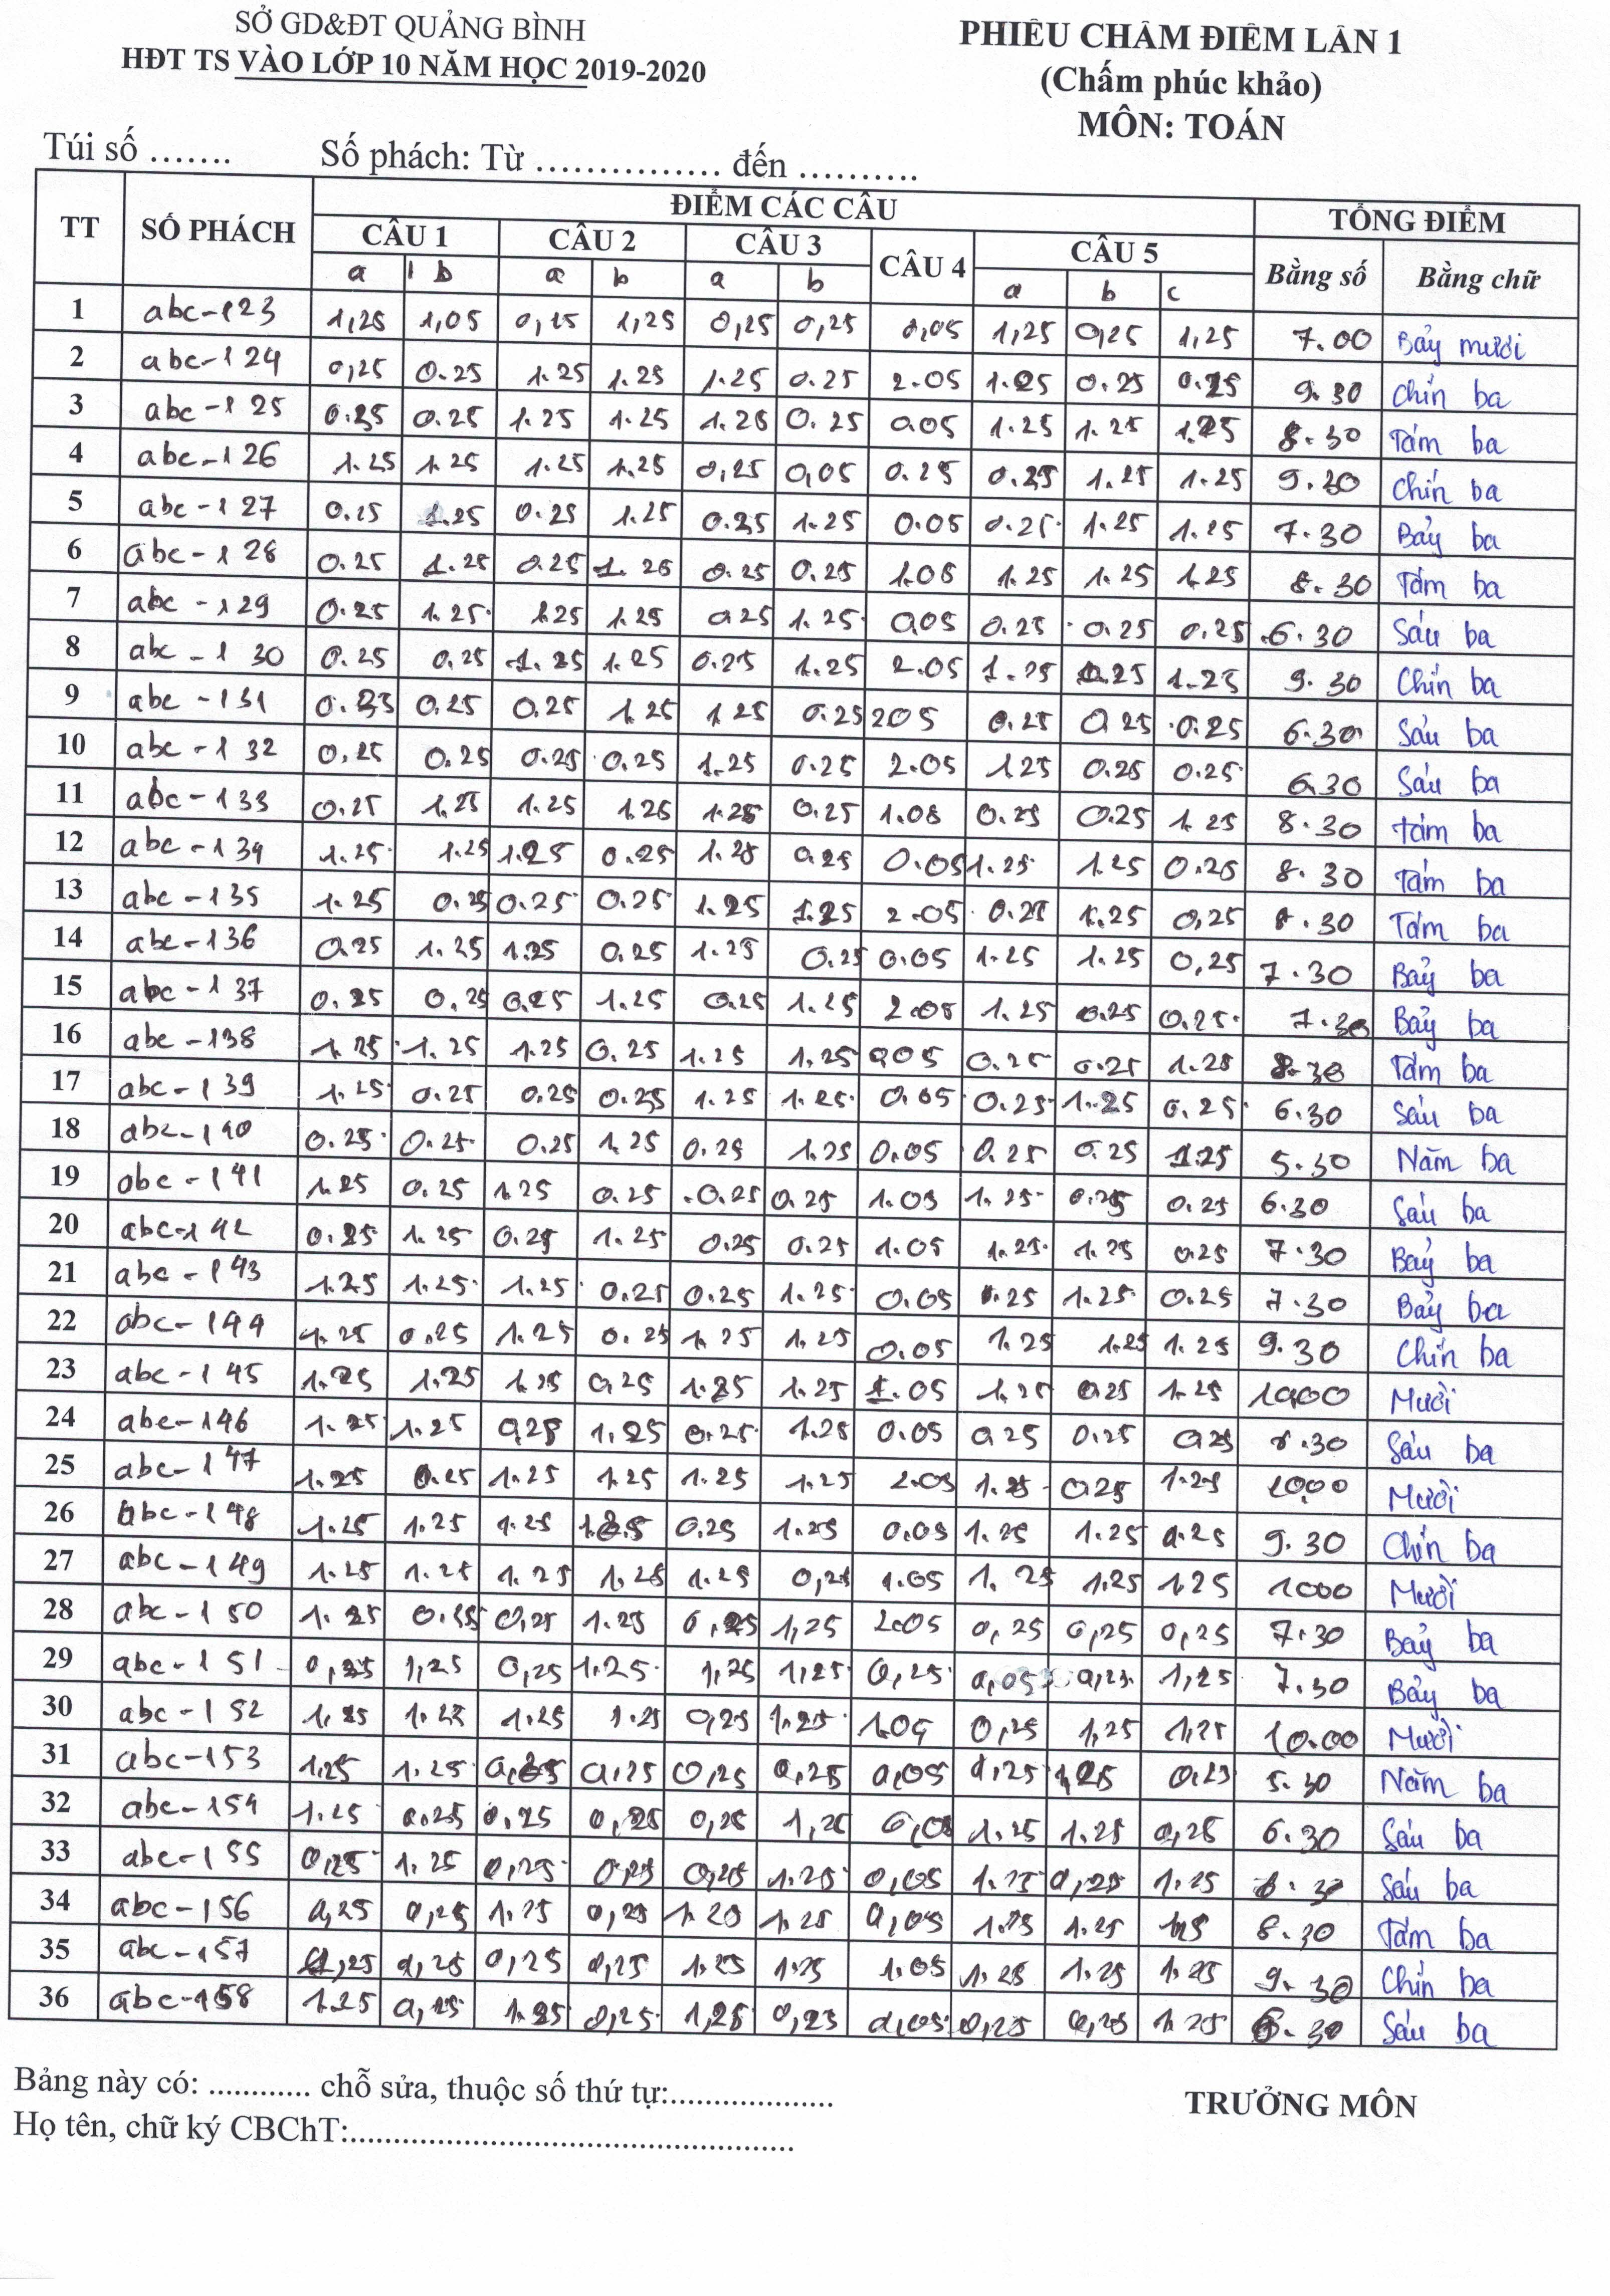 SỞ GD&ĐT QUẢNG BÌNH
HĐT TS VÀO LỚP 10 NĂM HỌC 2019-2020
PHIẾU CHẤM ĐIỂM LẦN 1
(Chấm phúc khảo)
MÔN: TOÁN
Túi số ....... Số phách: Từ ................ đến ..........
TT SỐ PHÁCH ĐIỂM CÁC CÂU TỔNG ĐIỂM
CÂU 1 CÂU 2 CÂU 3 CÂU 4 CÂU 5 Bằng số Bằng chữ
a b a b a b a b c
1 abc-123 1,25 1,05 0,25 1,25 0,25 0,25 0,05 1,25 0,25 1,25 7.00 Bảy mươi
2 abc-124 0,25 0.25 1.25 1.25 1.25 0.25 2.05 1.25 0.25 0.25 9.30 Chín ba
3 abc-125 0.25 0.25 1.25 1.25 1.25 0.25 0.05 1.25 1.25 1.25 8.30 Tám ba
4 abc-126 1.25 1.25 1.25 1.25 0,25 0,05 0.25 0.25 1.25 1.25 9.30 Chín ba
5 abc-127 0.25 1.25 0.25 1.25 0.25 1.25 0.05 0.25 1.25 1.25 7.30 Bảy ba
6 abc-128 0.25 1.25 0.25 1.25 0.25 0.25 1.05 1.25 1.25 1.25 8.30 Tám ba
7 abc-129 0.25 1.25 1.25 1.25 0.25 1.25 0.05 0.25 0.25 0.25 6.30 Sáu ba
8 abc-130 0.25 0.25 1.25 1.25 0.25 1.25 2.05 1.25 0.25 1.25 9.30 Chín ba
9 abc-131 0.25 0.25 0.25 1.25 1.25 0.25 205 0.25 0.25 0.25 6.30 Sáu ba
10 abc-132 0.25 0.25 0.25 0.25 1.25 0.25 2.05 1.25 0.25 0.25 6.30 Sáu ba
11 abc-133 0.25 1.25 1.25 1.25 1.25 0.25 1.05 0.25 0.25 1.25 8.30 tám ba
12 abc-134 1.25 1.25 1.25 0.25 1.25 0.25 0.05 1.25 1.25 0.25 8.30 Tám ba
13 abc-135 1.25 0.25 0.25 0.25 1.25 1.25 2.05 0.25 1.25 0,25 8.30 Tám ba
14 abc-136 0.25 1.25 1.25 0.25 1.25 0.25 0.05 1.25 1.25 0,25 7.30 Bảy ba
15 abc-137 0.25 0.25 0.25 1.25 0.25 1.25 2.05 1.25 0.25 0.25 7.30 Bảy ba
16 abc-138 1.25 1.25 1.25 0.25 1.25 1.25 0.05 0.25 0.25 1.25 8.30 Tám ba
17 abc-139 1.25 0.25 0.25 0.25 1.25 1.25 0.05 0.25 1.25 0.25 6.30 Sáu ba
18 abc-140 0.25 0.25 0.25 1.25 0.25 1.25 0.05 0.25 0.25 1.25 5.30 Năm ba
19 abc-141 1.25 0.25 1.25 0.25 0.25 0.25 1.05 1.25 0.25 0.25 6.30 Sáu ba
20 abc-142 0.25 1.25 0.25 1.25 0.25 0.25 1.05 1.25 1.25 0.25 7.30 Bảy ba
21 abc-143 1.25 1.25 1.25 0.25 0.25 1.25 0.05 0.25 1.25 0.25 7.30 Bảy ba
22 abc-144 1.25 0.25 1.25 0.25 1.25 1.25 0.05 1.25 1.25 1.25 9.30 Chín ba
23 abc-145 1.25 1.25 1.25 0.25 1.25 1.25 1.05 1.25 0.25 1.25 10,00 Mười
24 abc-146 1.25 1.25 0,25 1.25 0.25 1.25 0.05 0.25 0.25 0.25 6.30 Sáu ba
25 abc-147 1.25 0.25 1.25 1.25 1.25 1.25 2.05 1.25 0.25 1.25 10,00 Mười
26 abc-148 1.25 1.25 1.25 1.25 0.25 1.25 0.05 1.25 1.25 0.25 9.30 Chín ba
27 abc-149 1.25 1.25 1.25 1.25 1.25 0,25 1.05 1.25 1.25 1.25 1000 Mười
28 abc-150 1.25 0.25 0,25 1.25 0,25 1,25 2.05 0,25 0,25 0,25 7.30 Bảy ba
29 abc-151 0,25 1,25 0,25 1.25 1,25 1,25 0,25 0,05 0,25 1,25 7.30 Bảy ba
30 abc-152 1.25 1.25 1.25 1.25 0,25 1.25 1.05 0,25 1,25 1,25 10.00 Mười
31 abc-153 1.25 1.25 0,25 0,25 0,25 0,25 0,05 0,25 1,25 0,25 5.30 Năm ba
32 abc-154 1.25 0.25 0.25 0,25 0,25 1,25 0,05 1.25 1.25 0,25 6.30 Sáu ba
33 abc-155 0,25 1.25 0,25 0,25 0,25 1.25 0,05 1.25 0,25 1.25 6.30 Sáu ba
34 abc-156 0,25 0,25 1.25 0,25 1.20 1.25 0,05 1.25 1.25 1.25 8.30 Tám ba
35 abc-157 1,25 0,25 0,25 0,25 1.25 1.25 1.05 1.25 1.25 1.25 9.30 Chín ba
36 abc-158 1.25 0,25 1.25 0,25 1,25 0,25 0,05 0,25 0,25 1.25 6.30 Sáu ba
Bảng này có: ............ chỗ sửa, thuộc số thứ tự:....................
TRƯỞNG MÔN
Họ tên, chữ ký CBChT:..................................................